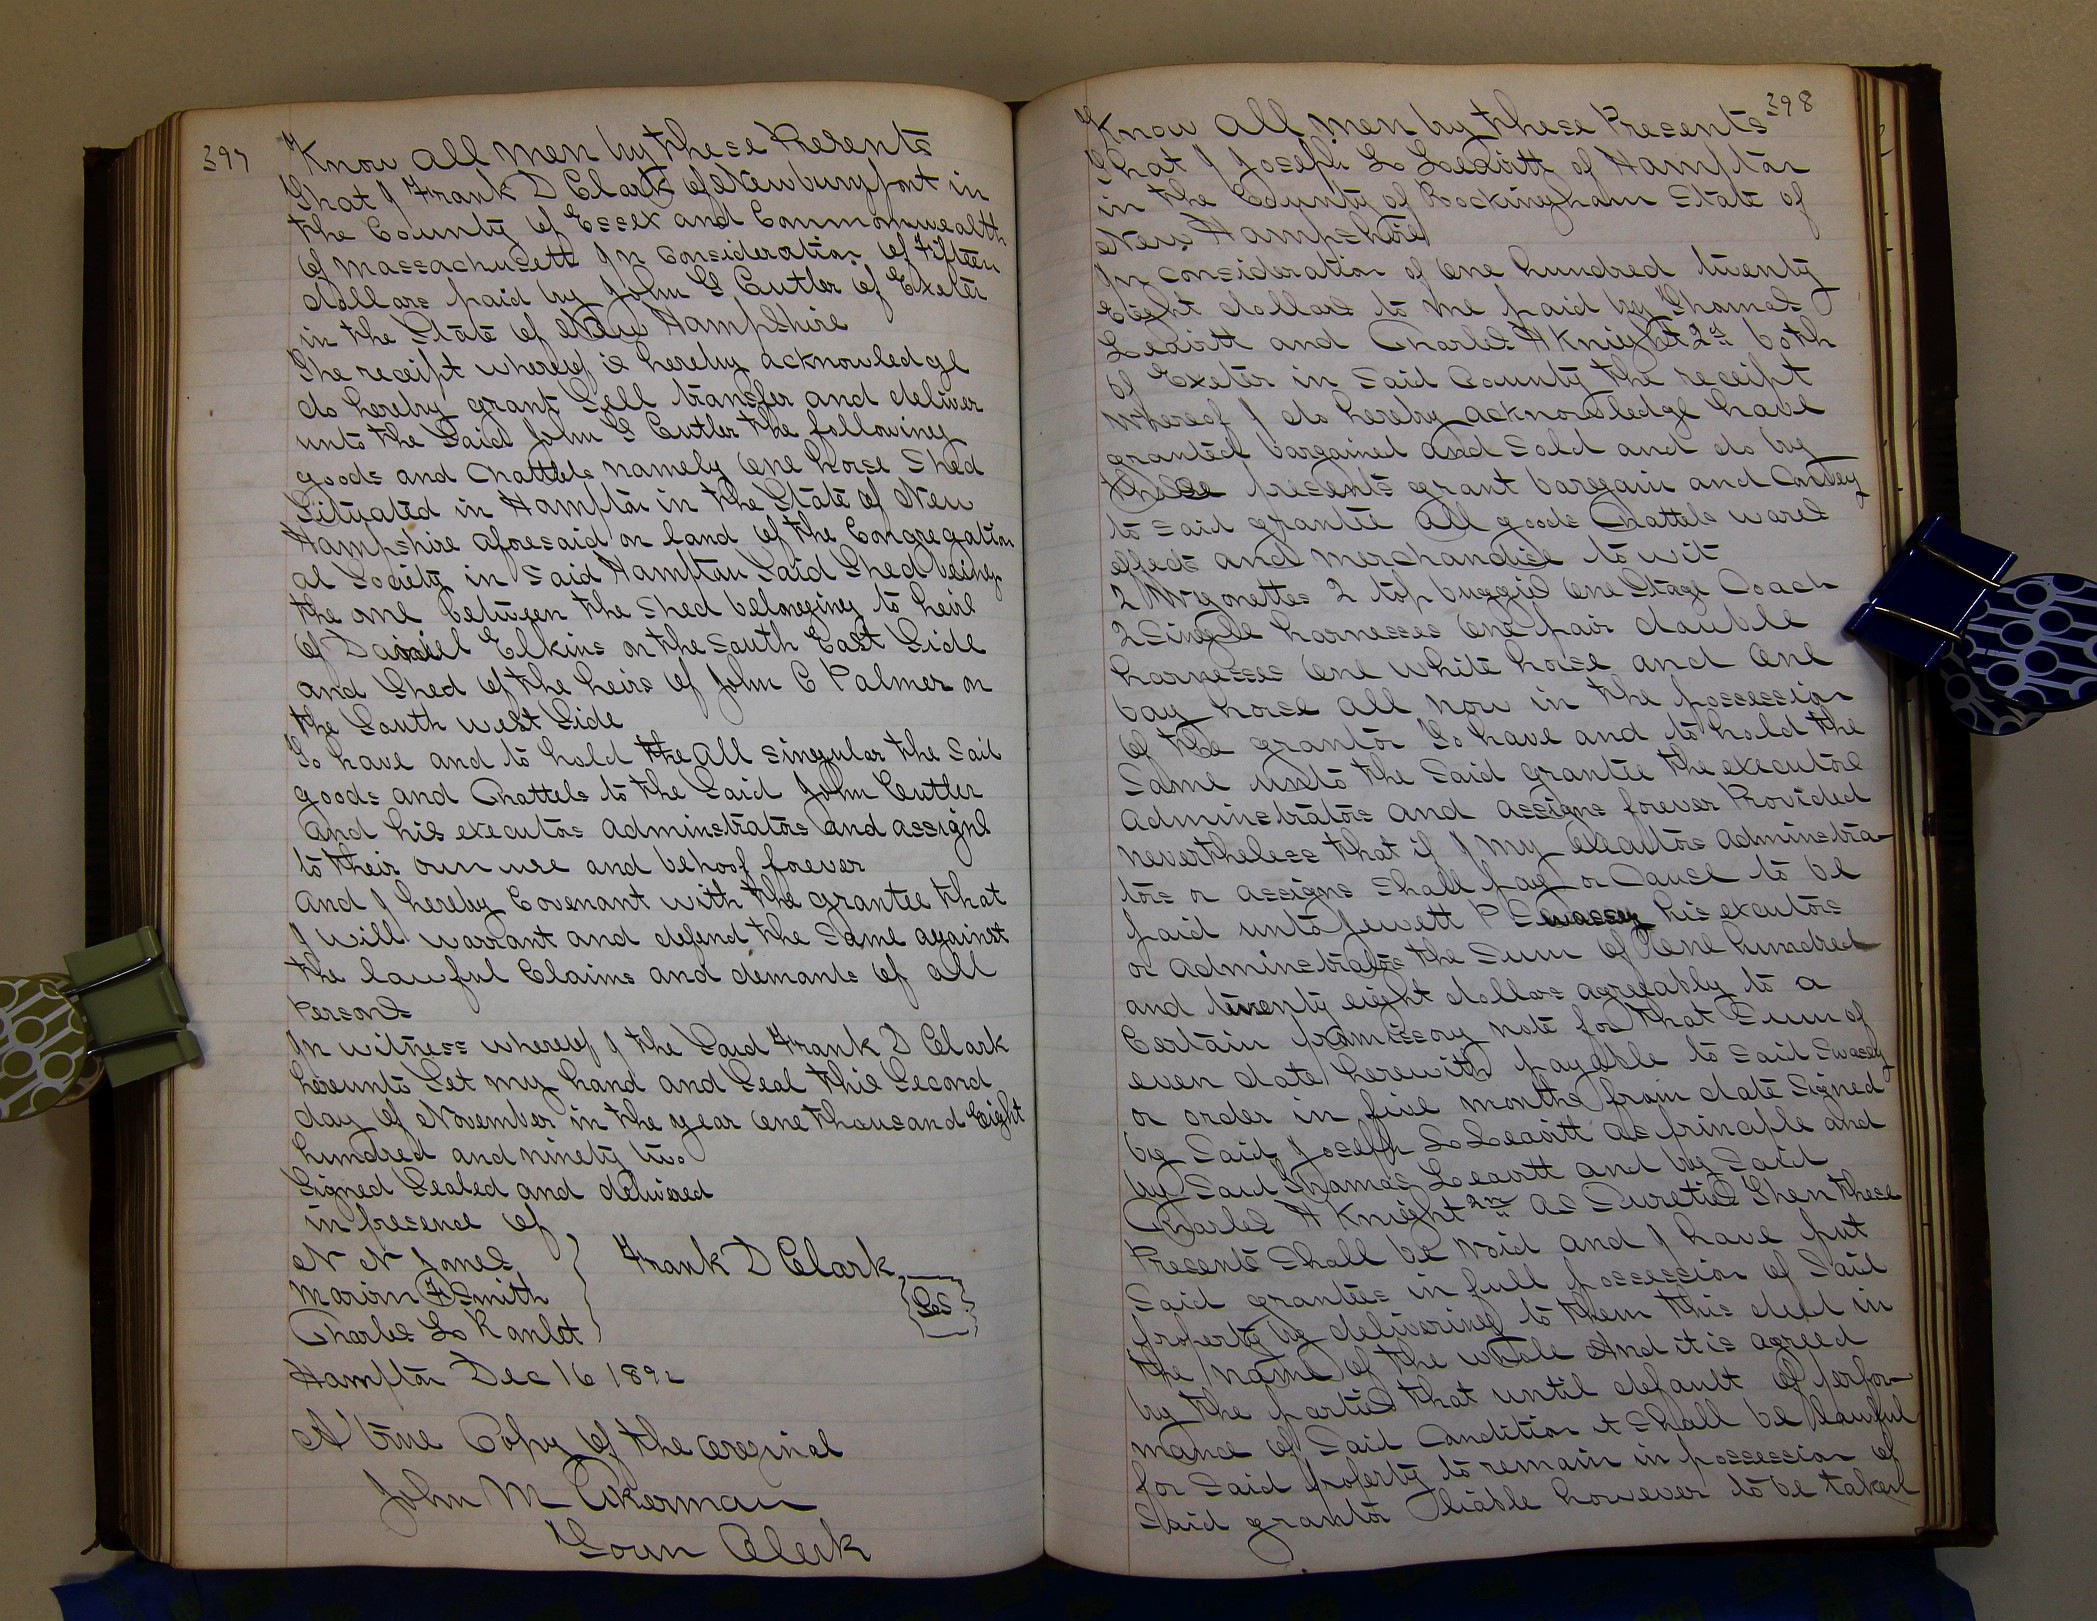 397
Know all men by these Presents
That I Frank D Clark of Newburyport in
the County of Essex and Commonwealth
of Massachusetts In consideration of Fifteen
dollars paid by John G Cutler of Exeter
in the State of New Hampshire
The receipt whereof is hereby acknowledge
do hereby grant Sell transfer and deliver
unto the Said John G Cutler the following
goods and Chattels namely One horse Shed
Situated in Hampton in the State of New
Hampshire aforesaid on land of the Congregation
al Society in Said Hampton Said Shed being
the one between the shed belonging to heirs
of Daniel Elkins on the South East Side
and Shed of the heirs of John C Palmer on
the South west Side
To have and to hold the all singular the Said
goods and Chattels to the Said John Cutler
and his executors adminstrators and assigns
to their own use and behoof forever
and I hereby Covenant with the grantee that
I will warrant and defend the Same against
the lawful Claims and demands of all
Persons
In witness whereof I the Said Frank D Clark
hereunto Set my hand and Seal this Second
day of November in the year one thousand Eight
hundred and ninety two
Signed Sealed and delivered
in presence of
N N Jones
Marion F Smith
Charles L Ranlet
Frank D Clark
Hampton Dec 16 1892
A true Copy of the original
John M Akerman
Town Clerk
398
Know all men by these Presents
That I Joseph L Leavitt of Hampton
in the County of Rockingham State of
New Hampshire
In consideration of One hundred twenty
Eight dollars to me paid by Thomas
Leavitt and Charles H Knight 2nd both
of Exeter in Said County the receipt
whereof I do hereby acknowledge have
granted bargained and Sold and do by
these presents grant bargain and Convey
to said grantee all goods Chattels wares
effects and merchandise to wit
2 Wagonettes 2 top buggies One Stage Coach
2 Single harnesses One pair double
harnesses One white horse and One
bay horse all now in the possession
of the grantor To have and to hold the
Same unto the Said grantee the executors
adminstrators and assigns forever Provided
nevertheless that if I my executors adminstra
tors or assigns shall pay or Cause to be
paid unto Jewett P Swasey his executors
or adminstrators the Sum of One hundred
and twenty eight dollars agreeably to a
Certain promissory note for that Sum of
even date herewith payable to Said Swasey
or order in five months from date Signed
by Said Joseph L Leavitt as principle and
by Said Thomas Leavitt and by Said
Charles H Knight 2nd as Sureties Then these
Presents Shall be Void and I have put
Said grantees in full possession of Said
property by delivering to them this deed in
the name of the whole And it is agreed
by the parties that until default of perfor
mance of Said Condition it Shall be lawful
for Said property to remain in possession of
Said grantor liable however to be taken